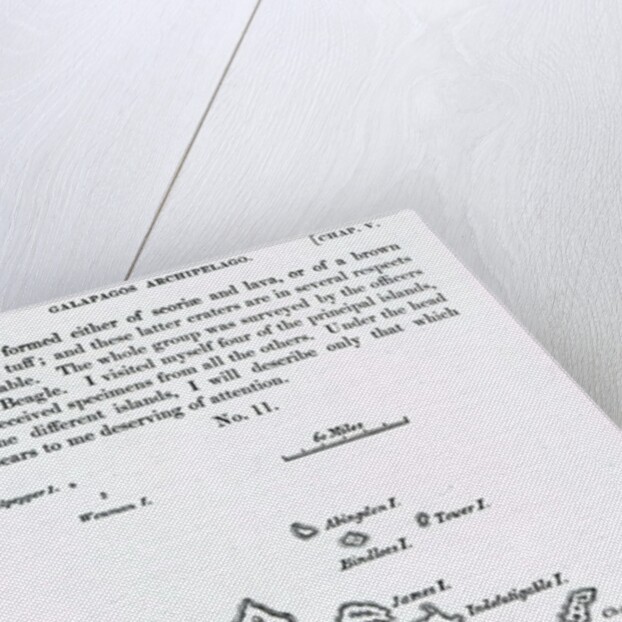 GALAPAGOS ARCHIPELAGO. [CHAP. V.
formed either of scoriæ and lava, or of a brown
tuff; and these latter craters are in several respects
able. The whole group was surveyed by the officers
Beagle. I visited myself four of the principal islands,
eceived specimens from all the others. Under the head
he different islands, I will describe only that which
ears to me deserving of attention.
No. 11.
60 Miles
lpepper I.
Wenman I.
Abingdon I.
Tower I.
Bindloes I.
James I.
Indefatigable I.
Ch